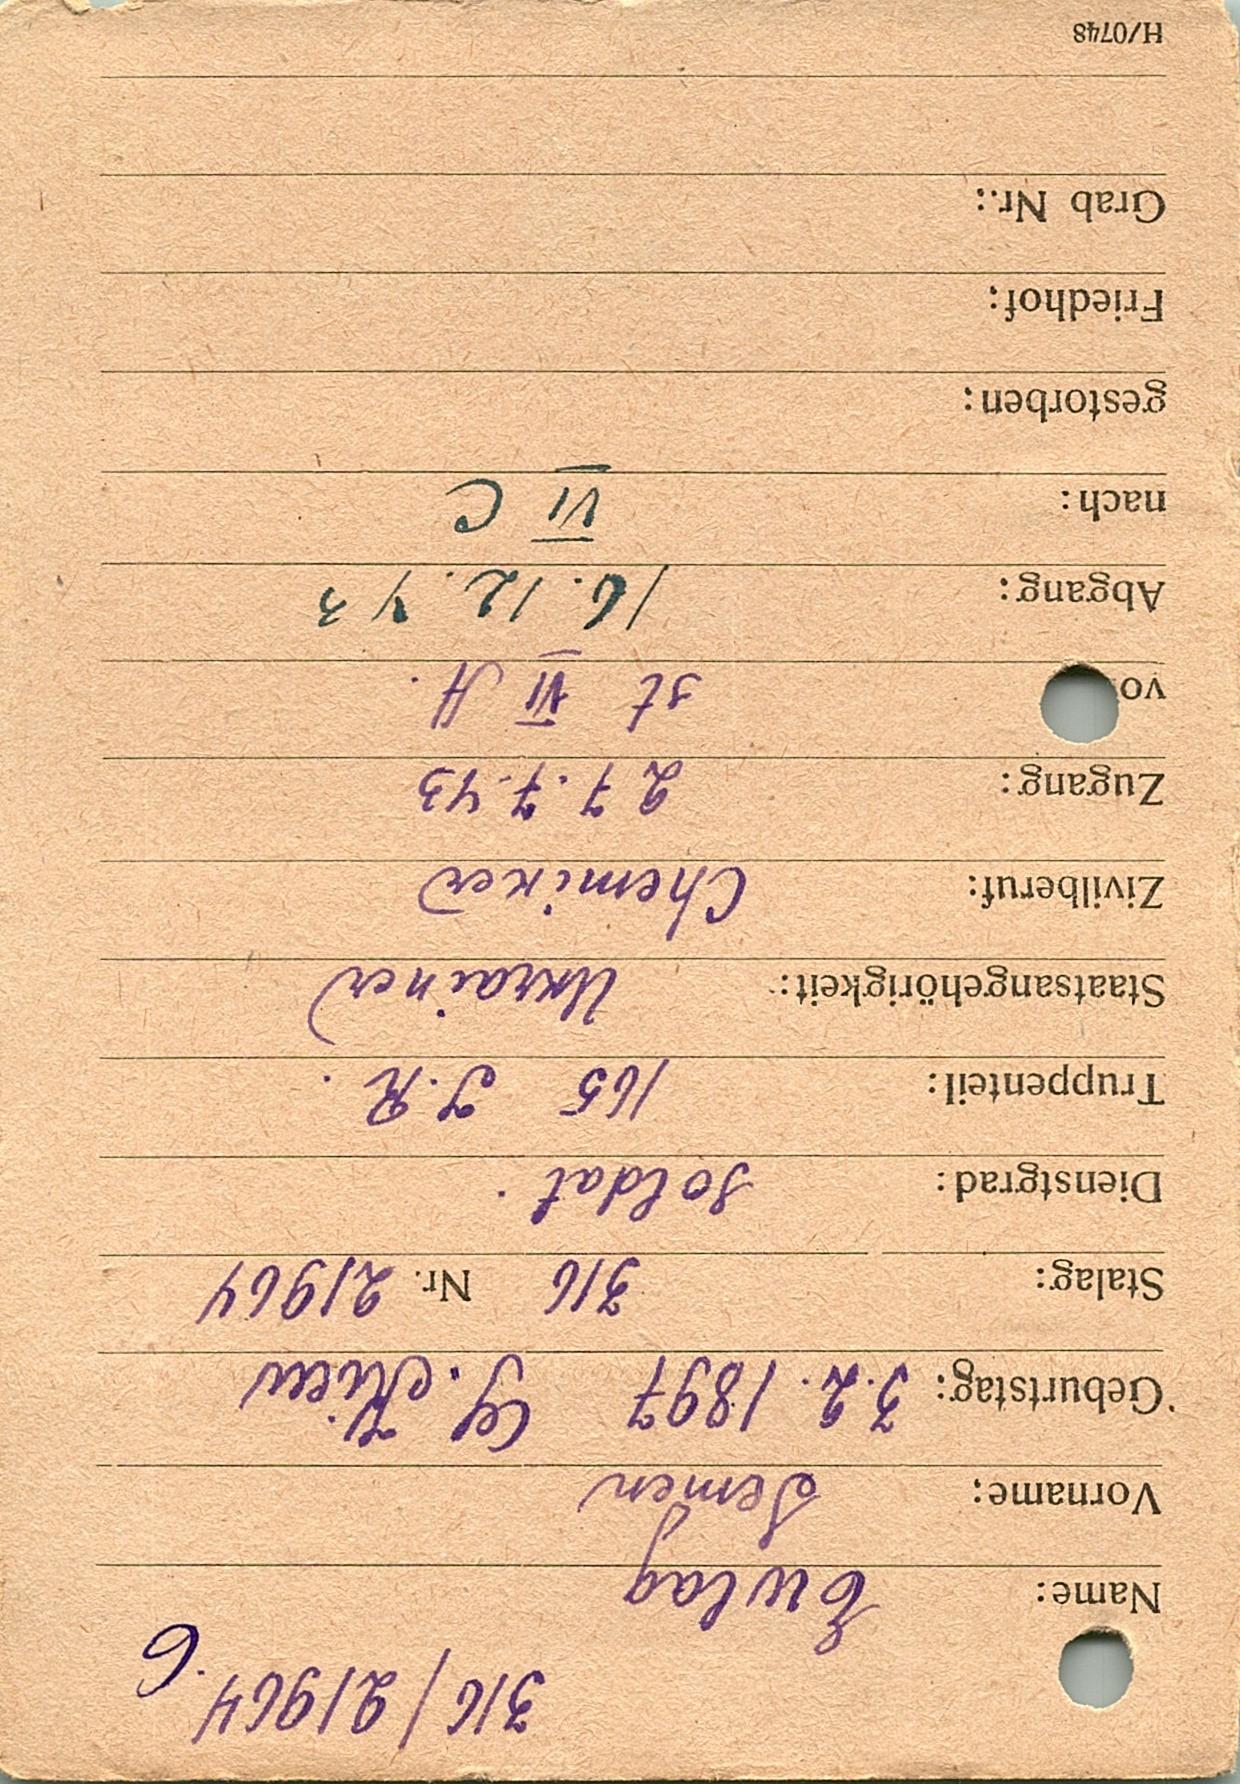 316/21964. C
Name: Ewlag
Vorname: Semen
Geburtstag: 3.2.1897 G. Kiew
Stalag: 316 Nr. 21964
Dienstgrad: Soldat.
Truppenteil: 165 J.R.
Staatsangehörigkeit: Ukrainer
Zivilberuf: Chemiker
Zugang: 27.7.43
vo st VI A.
Abgang: 16.12.43
nach: VI C
gestorben:
Friedhof:
Grab Nr.:
H/0748